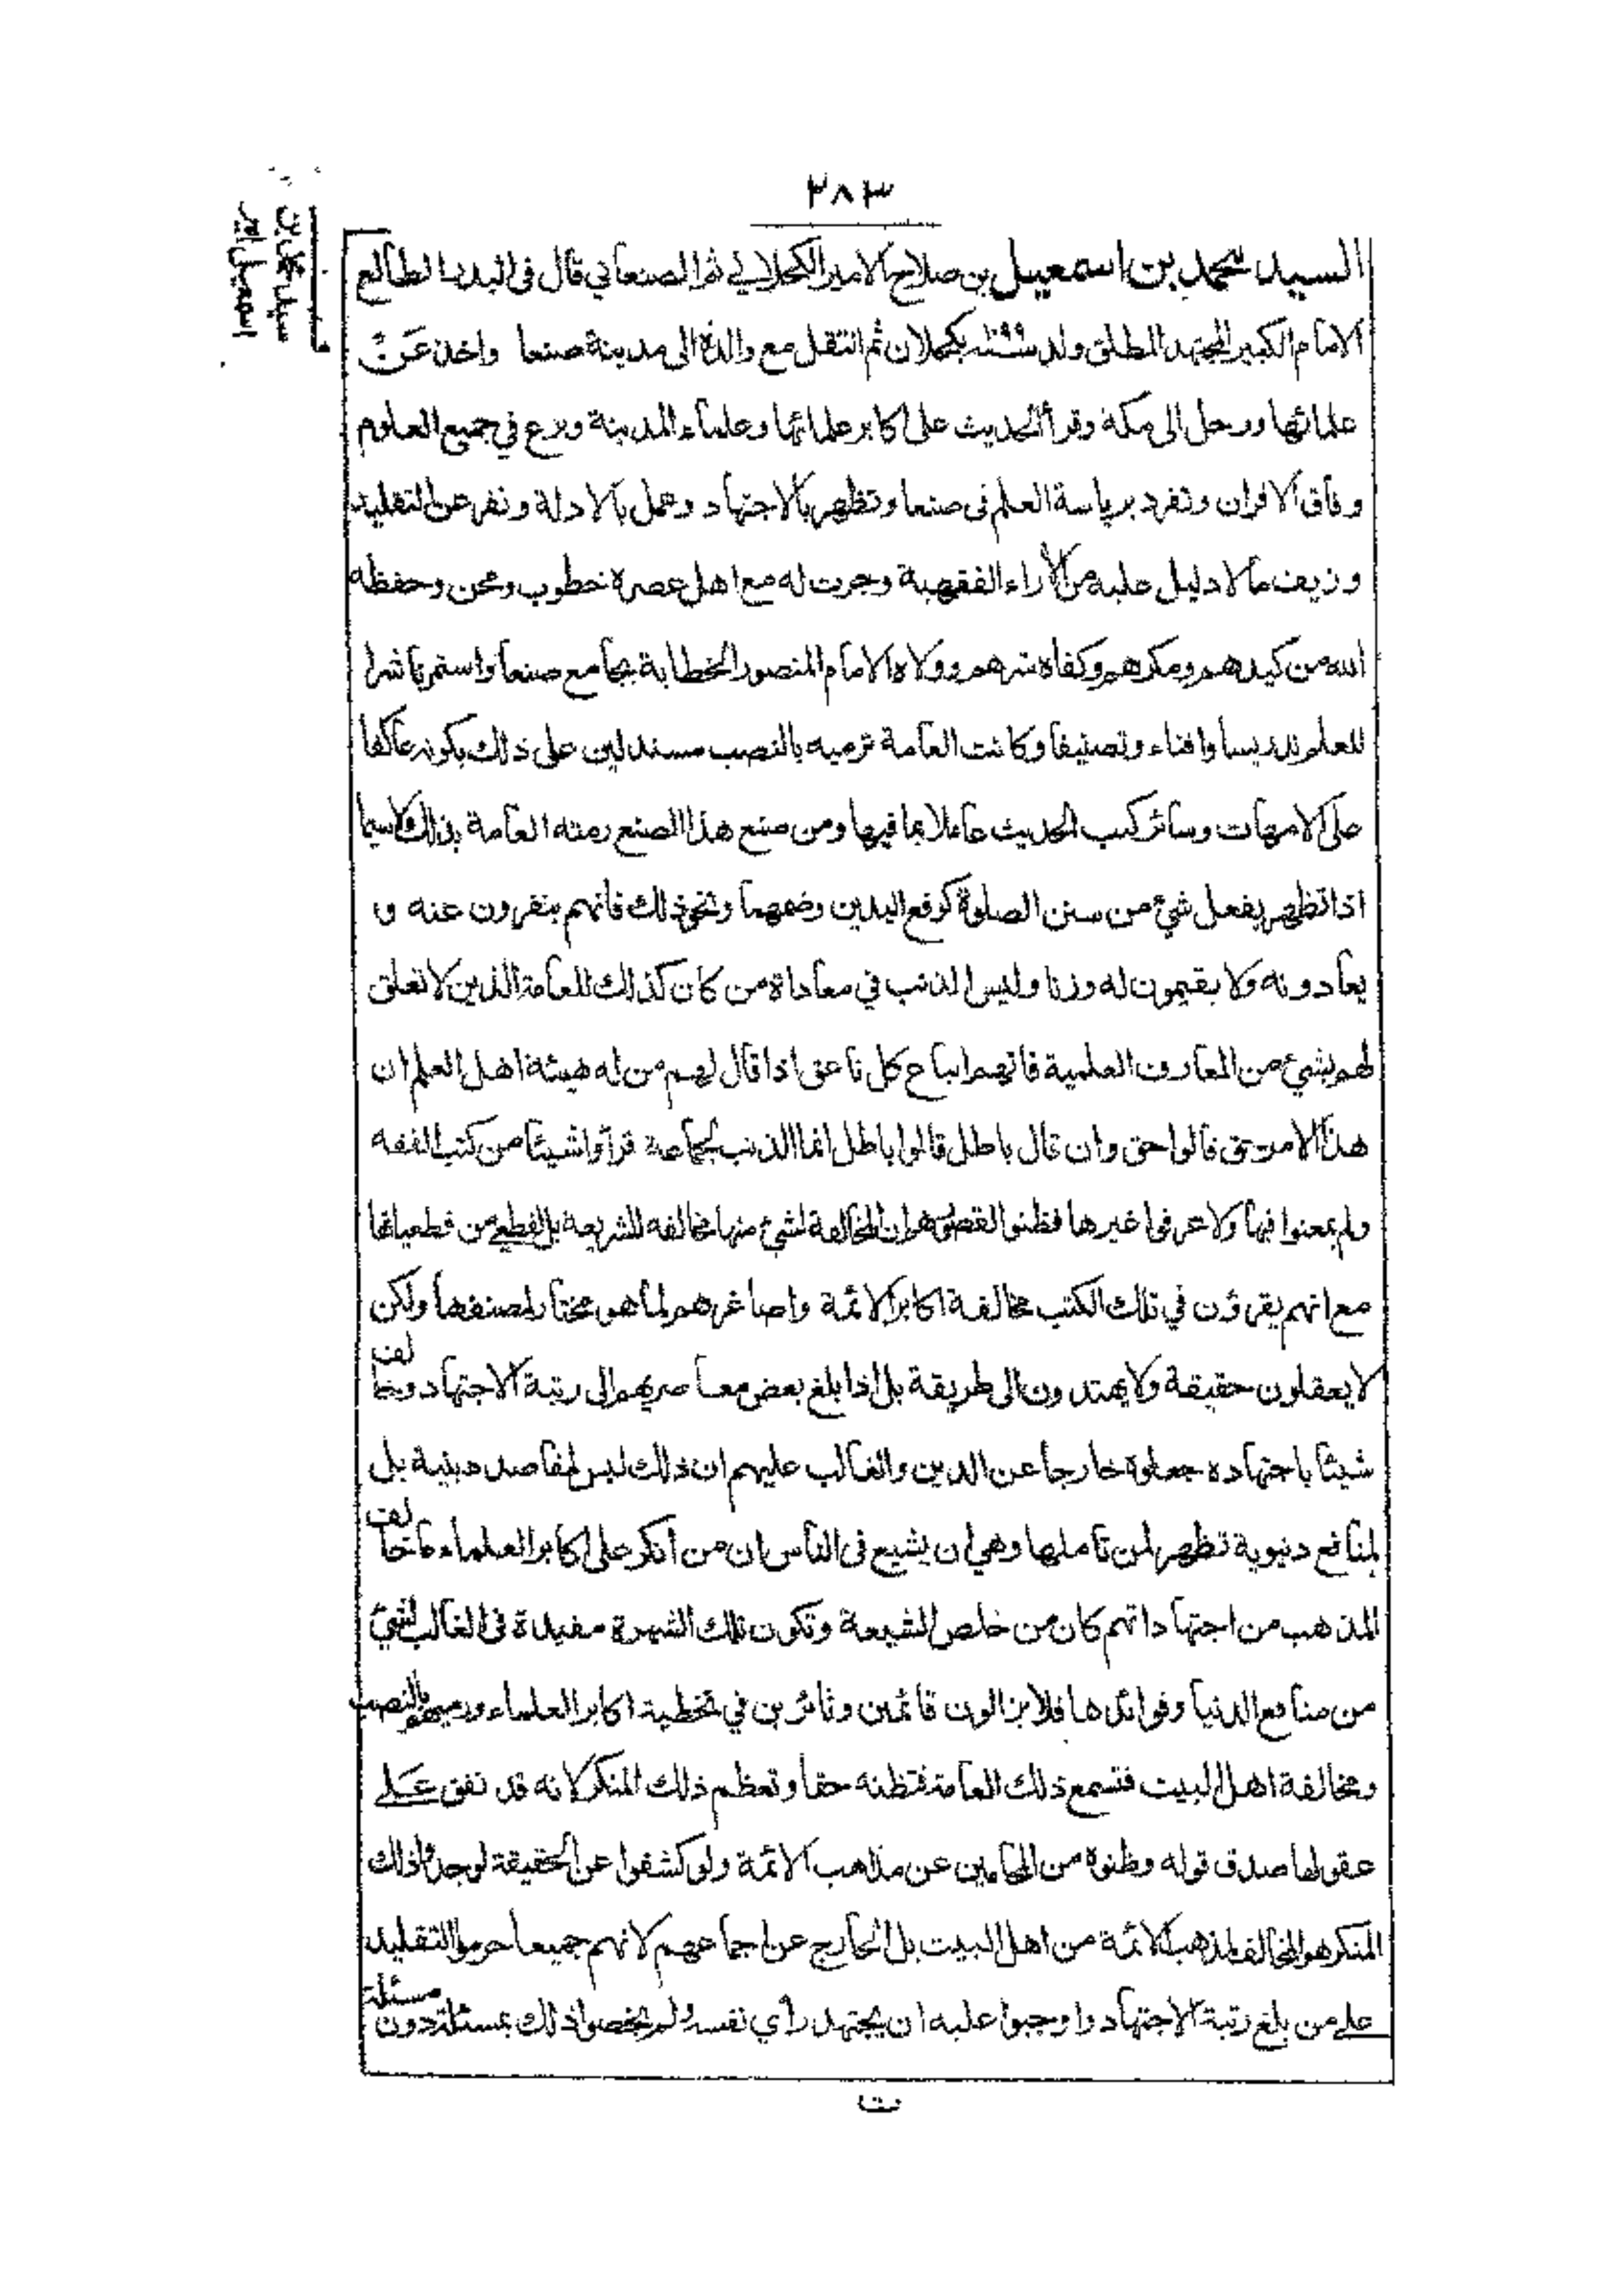 ٢٨٣
سيد محمد بن
اسمعيل امير
السيد محمد بن اسمعيل بن صلاح الامير الكحلاني ثم الصنعاني قال فى البدر الطالع
الامام الكبير المجتهد المطلق ولد سنة ١٠٩٩ بكحلان ثم انتقل مع والده الى مدينة صنعا واخذ عن
علمائها ورحل الى مكة وقرأ الحديث على اكابر علمائها وعلماء المدينة وبرع في جميع العلوم
وفاق الاقران وتفرد برياسة العلم فى صنعا وتظهر بالاجتهاد وعمل بالادلة ونفر عن التقليد
وزيف ما لا دليل عليه من الآراء الفقهية وجرت له مع اهل عصره خطوب ومحن وحفظه
الله من كيدهم ومكرهم وكفاه شرهم وولاه الامام المنصور الخطابة بجامع صنعا واستمر ناشرا
للعلم تدريسا وافتاء وتصنيفا وكانت العامة ترميه بالنصب مستدلين على ذلك بكونه عاكفا
على الامهات وسائر كتب الحديث عاملا بما فيها ومن صنع هذا الصنع رمته العامة بذلك ولاسيما
اذا تظهر بفعل شيء من سنن الصلوة كرفع اليدين وضمهما ونحو ذلك فانهم ينفرون عنه و
يعادونه ولا يقيمون له وزنا وليس الذنب في معاداة من كان كذلك للعامة الذين لا تعلق
لهم بشيء من المعارف العلمية فانهم اتباع كل ناعق اذا قال لهم من له هيئة اهل العلم ان
هذا الامر حق قالوا حق وان قال باطل قالوا باطل انما الذنب لجماعة قرأوا شيئا من كتب الفقه
ولم يمعنوا فيها ولا عرفوا غيرها فظنوا لقصورهم ان المخالفة لشيء منها مخالفه للشريعة بل القطعي من قطعياتها
مع انهم يقرؤن في تلك الكتب مخالفة اكابر الائمة واصاغرهم لما هو مختار لمصنفها ولكن
لا يعقلون حقيقة ولا يهتدون الى طريقة بل اذا بلغ بعض معاصريهم الى رتبة الاجتهاد وخالف
شيئا باجتهاده جعلوه خارجا عن الدين والغالب عليهم ان ذلك ليس لمقاصد دينية بل
لمنافع دنيوية تظهر لمن تاملها وهي ان يشيع فى الناس ان من انكر على اكابر العلماء ما خالف
المذهب من اجتهاداتهم كان من خلص الشيعة وتكون تلك الشهرة مفيدة فى الغالب لشيء
من منافع الدنيا وفوائدها فلا يزالون قائمين وثائرين في تخطية اكابر العلماء ورميهم بالنصب
ومخالفة اهل البيت فتسمع ذلك العامة فتظنه حقا وتعظم ذلك المنكر لانه قد نفق على
عقولها صدق قوله وظنوه من المحامين عن مذاهب الائمة ولو كشفوا عن الحقيقة لوجدوا ذلك
المنكر هو المخالف لمذهب الائمة من اهل البيت بل الخارج عن اجماعهم لانهم جميعا حرموا التقليد
على من بلغ رتبة الاجتهاد واوجبوا عليه ان يجتهد رأي نفسه ولم يخصوا ذلك بمسئلة دون مسئلة